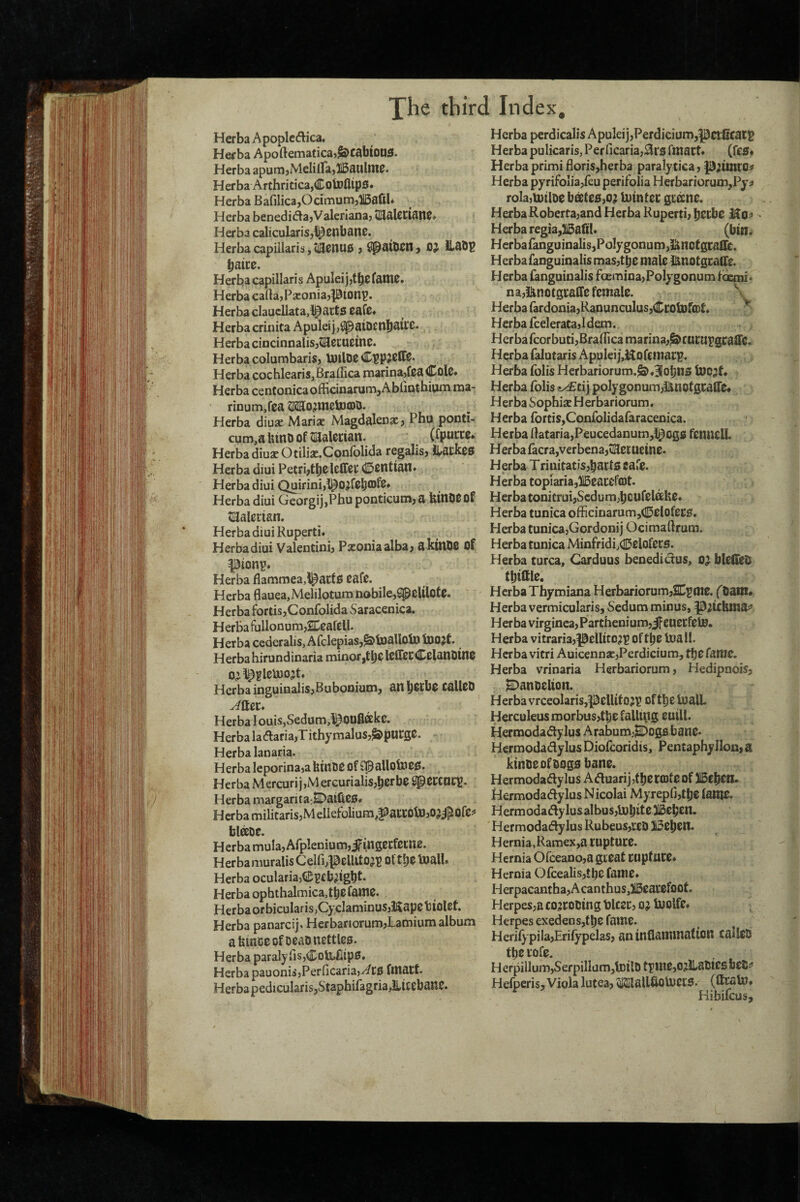 The third Index.
Herba Apoplectica.
Herba Apostematica, Scabious.
Herba apum, Melissa, Baulme.
Herba Arthritica, Cowslips.
Herba Basilica, Ocimum, Basil.
Herba benedicta, Valeriana, Valeriane.
Herba calicularis, Henbane.
Herba capillaris, Venus, Maiden, or Lady
haire.
Herba capillaris Apuleij, the same.
Herba casta, Pæonia, Piony.
Herba clauellata, Harts ease.
Herba crinita Apuleij, Maidenhaire.
Herba cincinnalis, Verueine.
Herba columbaris, wilde Cypresse.
Herba cochlearis, Brassica marina, sea Cole.
Herba centonica officinarum, Absinthium ma-
rinum, sea Wormewood.
Herba diuæ Mariæ Magdalenæ, Phu ponti-
cum, a kind of Valerian. (spurre.
Herba diuæ Otiliæ. Consolida regalis, Larkes
Herba diui Petri, the lesser Gentian.
Herba diui Quirini, Horsehoofe.
Herba diui Georgij, Phu ponticum, a kinde of
Valerian.
Herba diui Ruperti.
Herba diui Valentini, Pæonia alba, a kinde of
Piony.
Herba flammea, Harts ease.
Herba flauea, Melilotum nobile, Melilote.
Herba fortis, Consolida Saracenica.
Herba fullonum, Teasell.
Herba cederalis, Asclepias, Swallow wort.
Herba hirundinaria minor, the lesser Celandine
or Pylewort.
Herba inguinalis, Bubonium, an herbe called
After.
Herba louis, Sedum, Housleeke.
Herba lactaria, Tithymalus, Spurge.
Herba lanaria.
Herba leporina, a kinde of Mallowes.
Herba Mercurij, Mercurialis, herbe Mercury.
Herba margarita. Daisies.
Herba militaris, Mellefolium, Yarrow, or Nose-
bleede.
Herba mula, Asplenium, Fingerferne.
Herba muralis Celsi, Pellitory of the wall.
Herba ocularia, Eyebright.
Herba ophthalmica, the same.
Herba orbicularis, Cyclaminus, Rape violet.
Herba panarcij. Herbariorum, Lamium album
a kinde of dead nettles.
Herba paralysis, Cowslips.
Herba pauonis, Persicaria, Ars smart.
Herba pedicularis, Staphisagria, Licebane.
Herba perdicalis Apuleij, Perdicium, Persicary
Herba pulicaris, Persicaria, Ars smart. (ses.
Herba primi floris, herba paralytica, Primro-
Herba pyrifolia, seu perifolia Herbariorum, Py-
rola, wilde beetes, or winter greene.
Herba Roberta, and Herba Ruperti, herbe Ro-
Herba regia, Basil. (bin.
Herba sanguinalis, Polygonum, Knotgrasse.
Herba sanguinalis mas, the male Knotgrasse.
Herba sanguinalis fœmina, Polygonum fœmi-
na, Knotgrasse female.
Herba sardonia, Ranunculus, Crowfoot.
Herba scelerata, Idem.
Herba scorbuti, Brassica marina, Scurupgrasse.
Herba salutaris Appuleij, Rosemary.
Herba solis Herbariorum. S. Johns wort.
Herba solis Ætij polygonum, Knotgrasse.
Herba Sophiæ Herbariorum.
Herba fortis, Consolidasaracenica.
Herba stataria, Peucedanum, Hogs fennell.
Herba sacra, verbena, Verueine.
Herba Trinitatis, harts ease.
Herba topiaria, Bearefoot.
Herba tonitrui, Sedum, houseleeke.
Herba tunica officinarum, Gelofers.
Herba tunica, Gordonij Ocimastrum.
Herba tunica Minfridi, Gelofers.
Herba turca, Carduus benedictus, or blessed
thistle.
Herba Thymiana Herbariorum, Tyme. (dam.
Herba vermicularis, Sedum minus, Prickma-
Herba virginea, Parthenium, Feuerfew.
Herba vitraria, Pellitory of the wall.
Herba vitri Auicennæ, Perdicium, the same.
Herba vrinaria Herbariorum, Hedipnois,
Dandelion.
Herba vrceolaris, Pellitory of the wall.
Herculeus morbus, the falling euill.
Hermodactylus Arabum, Dogs bane.
Hermodactylus Dioscoridis, Pentaphyllon, a
kinde of dogs bane.
Hermodactylus Actuarij, the roote of Behen.
Hermodactylus Nicolai Myrepsi, the same.
Hermodactylus albus, white Behen.
Hermodactylus Rubeus, red Behen.
Hernia, Ramex, a rupture.
Hernia Osceano, a great rupture.
Hernia Oscealis, the same.
Herpacantha, Acanthus, Bearefoot.
Herpes, a corroding vlcer, or wolfe.
Herpes exedens, the same.
Herisypila, Erisypelas, an inflammation called
the rose.
Herpillum, Serpillum, wild tyme, or Ladies bed-
Hesperis, Viola lutea, Wallflowers. (straw.
Hibiscus,